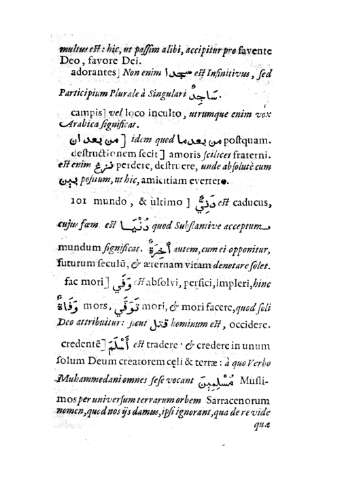 multus est: hic, ut possim alibi, accipitur pro favente
Deo, favore Dei.
adorantes] Non enim سجدا est Infinitivus, sed
Participium Plurale à Singulari سَاجِدٌ.
campis] vel loco inculto, utrumque enim vox
Arabica significat.
من بعد ان] idem quod من بعد ما postquam.
destructionem fecit] amoris scilicet fraterni.
est enim نزغ perdere, destruere, unde absolutè cum
بين positum, ut hic, amicitiam evertere.
101 mundo, & ultimo] دَنِيٌّ est caducus,
cujus fœm est دُنْيَا quod Substantivè acceptum
mundum significat. آخِرَة autem, cum ei opponitur,
futurum seculū, & æternam vitam denotare solet.
fac mori] وَفَى est absolvi, perfici, impleri, hinc
وَفَاةٌ mors, تَوَفَّى mori, & mori facere, quod soli
Deo attribuitur: sicut قتل hominum est, occidere.
credentē] أَسْلَمَ est tradere & credere in unum
solum Deum creatorem cęli & terræ: à quo Verbo
Muhammedani omnes sese vocant مُسْلِمِينَ Musli-
mos per universum terrarum orbem Sarracenorum
nomen, quod nos ijs damus, ipsi ignorant, qua de re vide
quæ